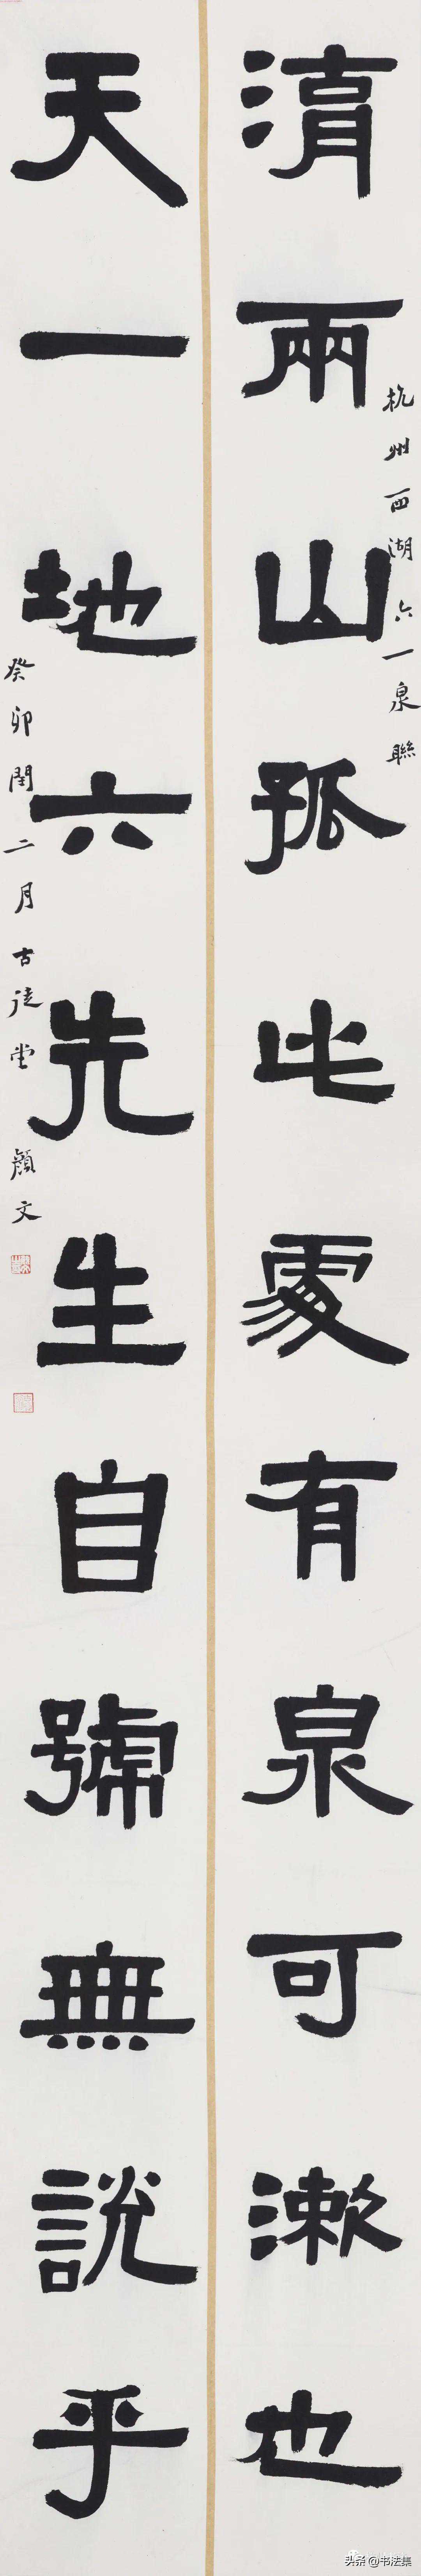 杭州西湖六一泉聯
兩山孤此處有泉可漱也
天一地六先生自號無說乎
癸卯閏二月古徒堂顏文
头条 @书法集